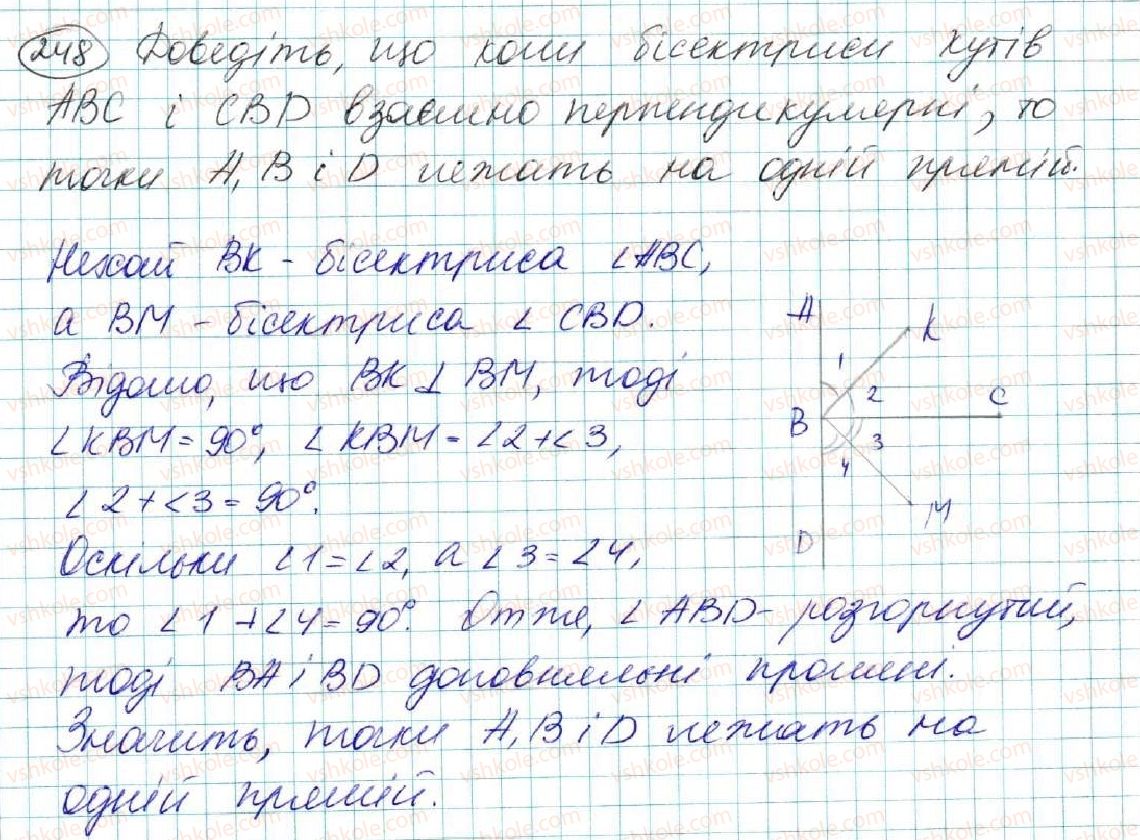 248 Доведіть, що коли бісектриси кутів
ABC і CBD взаємно перпендикулярні, то
точки A, B і D лежать на одній прямій.
Нехай BK - бісектриса ∠ABC,
а BM - бісектриса ∠ CBD.
Відомо, що BK ⊥ BM, тоді
∠KBM = 90°, ∠KBM = ∠2+∠3,
∠2+∠3 = 90°.
Оскільки ∠1=∠2, а ∠3=∠4,
то ∠1+∠4= 90°. Отже, ∠ABD - розгорнутий,
тоді BA і BD доповняльні промені.
Значить, точки A, B і D лежать на
одній прямій.
A
K
1
2
C
B
3
4
M
D
vshkole.com